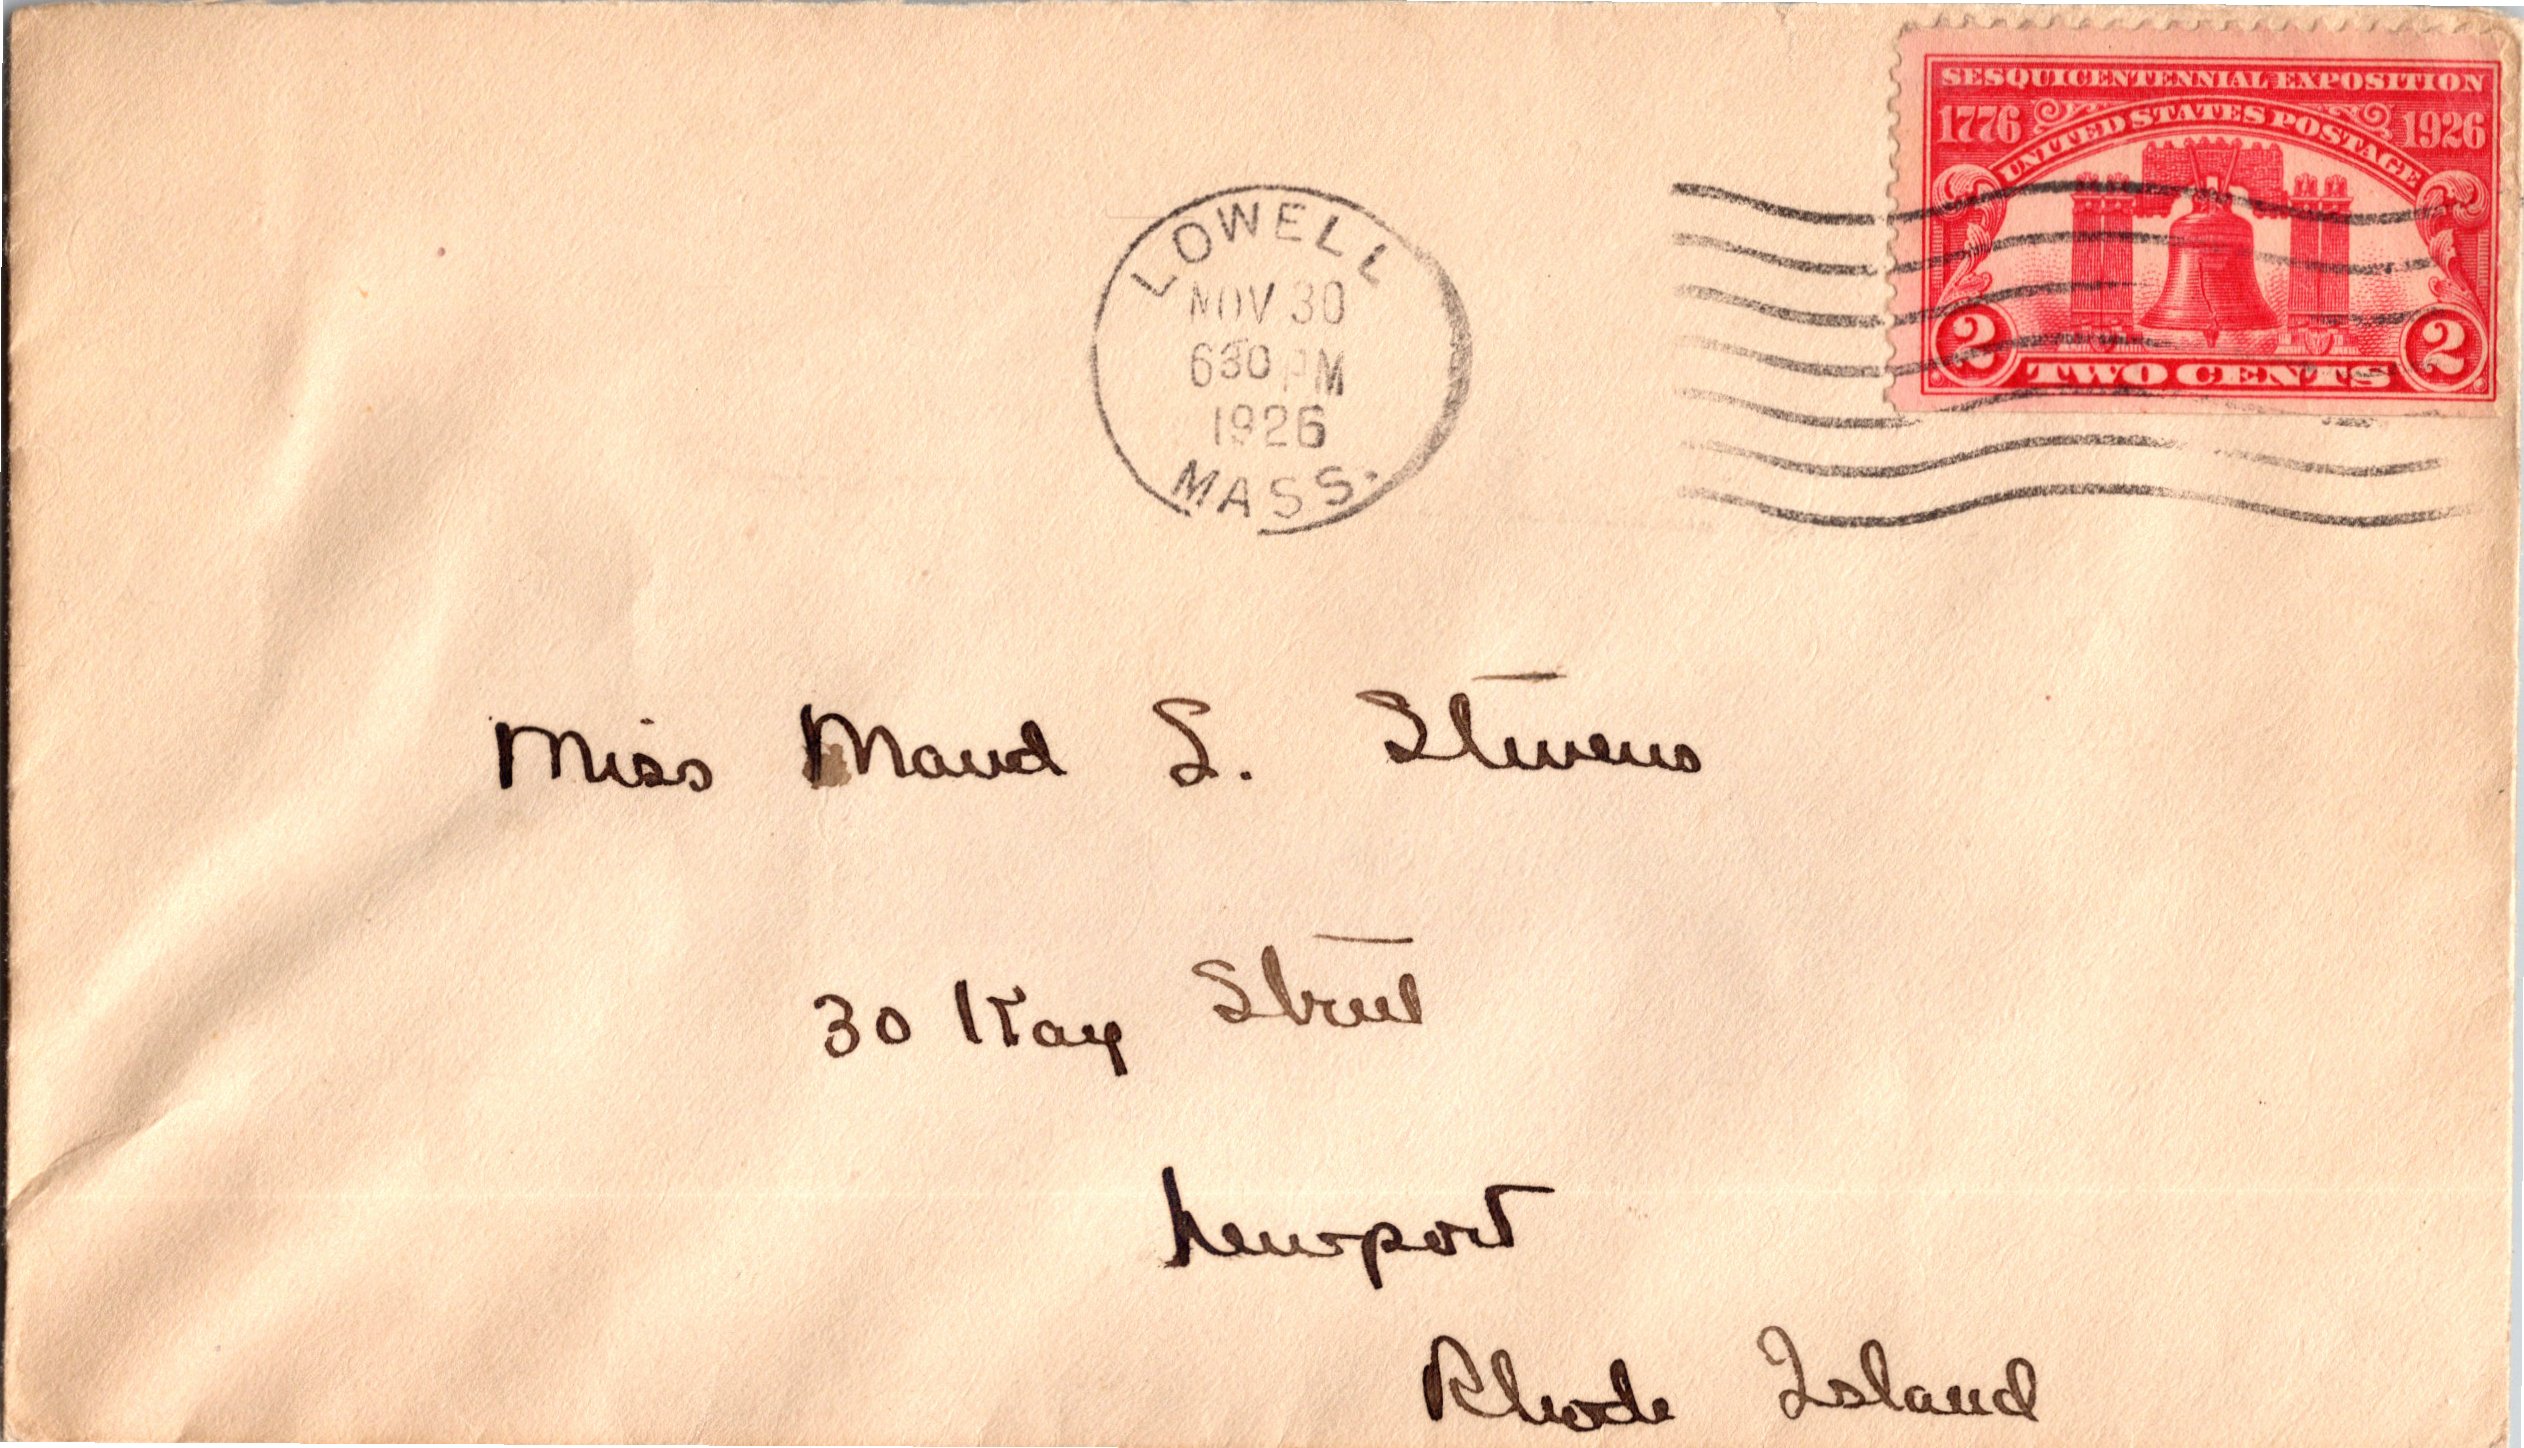 SESQUICENTENNIAL EXPOSITION
1776 UNITED STATES POSTAGE 1926
2 TWO CENTS 2
LOWELL
NOV 30
630 PM
1926
MASS.
Miss Maud S. Stevens
30 Kay Street
Newport
Rhode Island